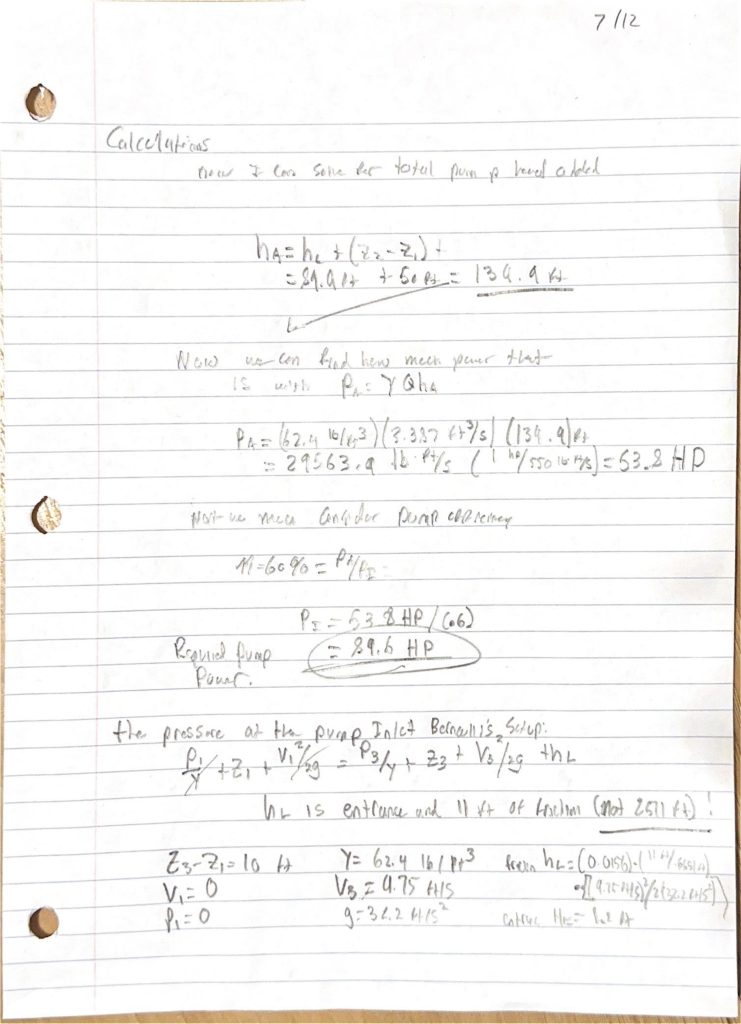 7/12
Calculations
now I can solve for total pump head added
hA = hL + (Z2 - Z1) +
= 89.9 ft + 50 ft = 139.9 ft
Now we can find how much power that
is with PA = γQhA
PA = (62.4 lb/ft3)(3.387 ft3/s)(139.9)ft
= 29563.9 lb·ft/s (1 hp/550 lb ft/s) = 53.8 HP
must consider pump efficiency
η = 60% = PA/PI
PI = 53.8 HP/(0.6)
= 89.6 HP
Required pump
Power.
the pressure at the pump Inlet Bernoulli's Setup:
P1/γ + Z1 + V1²/2g = P3/γ + Z3 + V3²/2g + hL
hL is entrance and 11 ft of friction (not 2511 ft)!
Z3 - Z1 = 10 ft γ = 62.4 lb/ft3 hL = (0.0156)·(11 ft/
V1 = 0 V3 = 9.75 ft/s ·[(9.75 ft/s)²/2(32.2 ft/s²)]
P1 = 0 g = 32.2 ft/s²